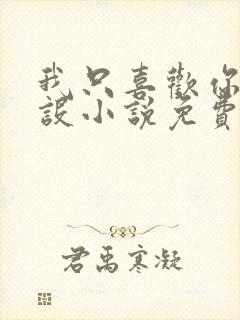 我只喜歡你
設小說免費
君禹寒凝